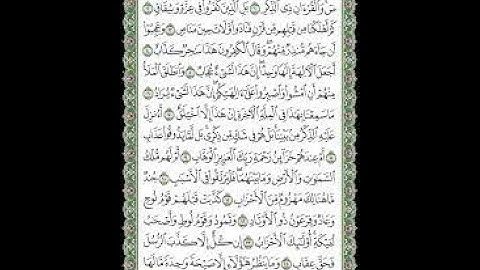 صٓ وَٱلۡقُرۡءَانِ ذِي ٱلذِّكۡرِ ١ بَلِ ٱلَّذِينَ كَفَرُواْ فِي عِزَّةٖ وَشِقَاقٖ ٢
كَمۡ أَهۡلَكۡنَا مِن قَبۡلِهِم مِّن قَرۡنٖ فَنَادَواْ وَّلَاتَ حِينَ مَنَاصٖ ٣ وَعَجِبُوٓاْ
أَن جَآءَهُم مُّنذِرٞ مِّنۡهُمۡۖ وَقَالَ ٱلۡكَٰفِرُونَ هَٰذَا سَٰحِرٞ كَذَّابٌ ٤
أَجَعَلَ ٱلۡأٓلِهَةَ إِلَٰهٗا وَٰحِدًاۖ إِنَّ هَٰذَا لَشَيۡءٌ عُجَابٞ ٥ وَٱنطَلَقَ ٱلۡمَلَأُ
مِنۡهُمۡ أَنِ ٱمۡشُواْ وَٱصۡبِرُواْ عَلَىٰٓ ءَالِهَتِكُمۡۖ إِنَّ هَٰذَا لَشَيۡءٞ يُرَادُ ٦
مَا سَمِعۡنَا بِهَٰذَا فِي ٱلۡمِلَّةِ ٱلۡأٓخِرَةِ إِنۡ هَٰذَآ إِلَّا ٱخۡتِلَٰقٌ ٧ أَءُنزِلَ
عَلَيۡهِ ٱلذِّكۡرُ مِنۢ بَيۡنِنَاۚ بَلۡ هُمۡ فِي شَكّٖ مِّن ذِكۡرِيۚ بَل لَّمَّا يَذُوقُواْ عَذَابِ
٨ أَمۡ عِندَهُمۡ خَزَآئِنُ رَحۡمَةِ رَبِّكَ ٱلۡعَزِيزِ ٱلۡوَهَّابِ ٩ أَمۡ لَهُم مُّلۡكُ
ٱلسَّمَٰوَٰتِ وَٱلۡأَرۡضِ وَمَا بَيۡنَهُمَاۖ فَلۡيَرۡتَقُواْ فِي ٱلۡأَسۡبَٰبِ ١٠ جُندٞ
مَّا هُنَالِكَ مَهۡزُومٞ مِّنَ ٱلۡأَحۡزَابِ ١١ كَذَّبَتۡ قَبۡلَهُمۡ قَوۡمُ نُوحٖ
وَعَادٞ وَفِرۡعَوۡنُ ذُو ٱلۡأَوۡتَادِ ١٢ وَثَمُودُ وَقَوۡمُ لُوطٖ وَأَصۡحَٰبُ
لۡـَٔيۡكَةِۚ أُوْلَٰٓئِكَ ٱلۡأَحۡزَابُ ١٣ إِن كُلٌّ إِلَّا كَذَّبَ ٱلرُّسُلَ
فَحَقَّ عِقَابِ ١٤ وَمَا يَنظُرُ هَٰٓؤُلَآءِ إِلَّا صَيۡحَةٗ وَٰحِدَةٗ مَّا لَهَا